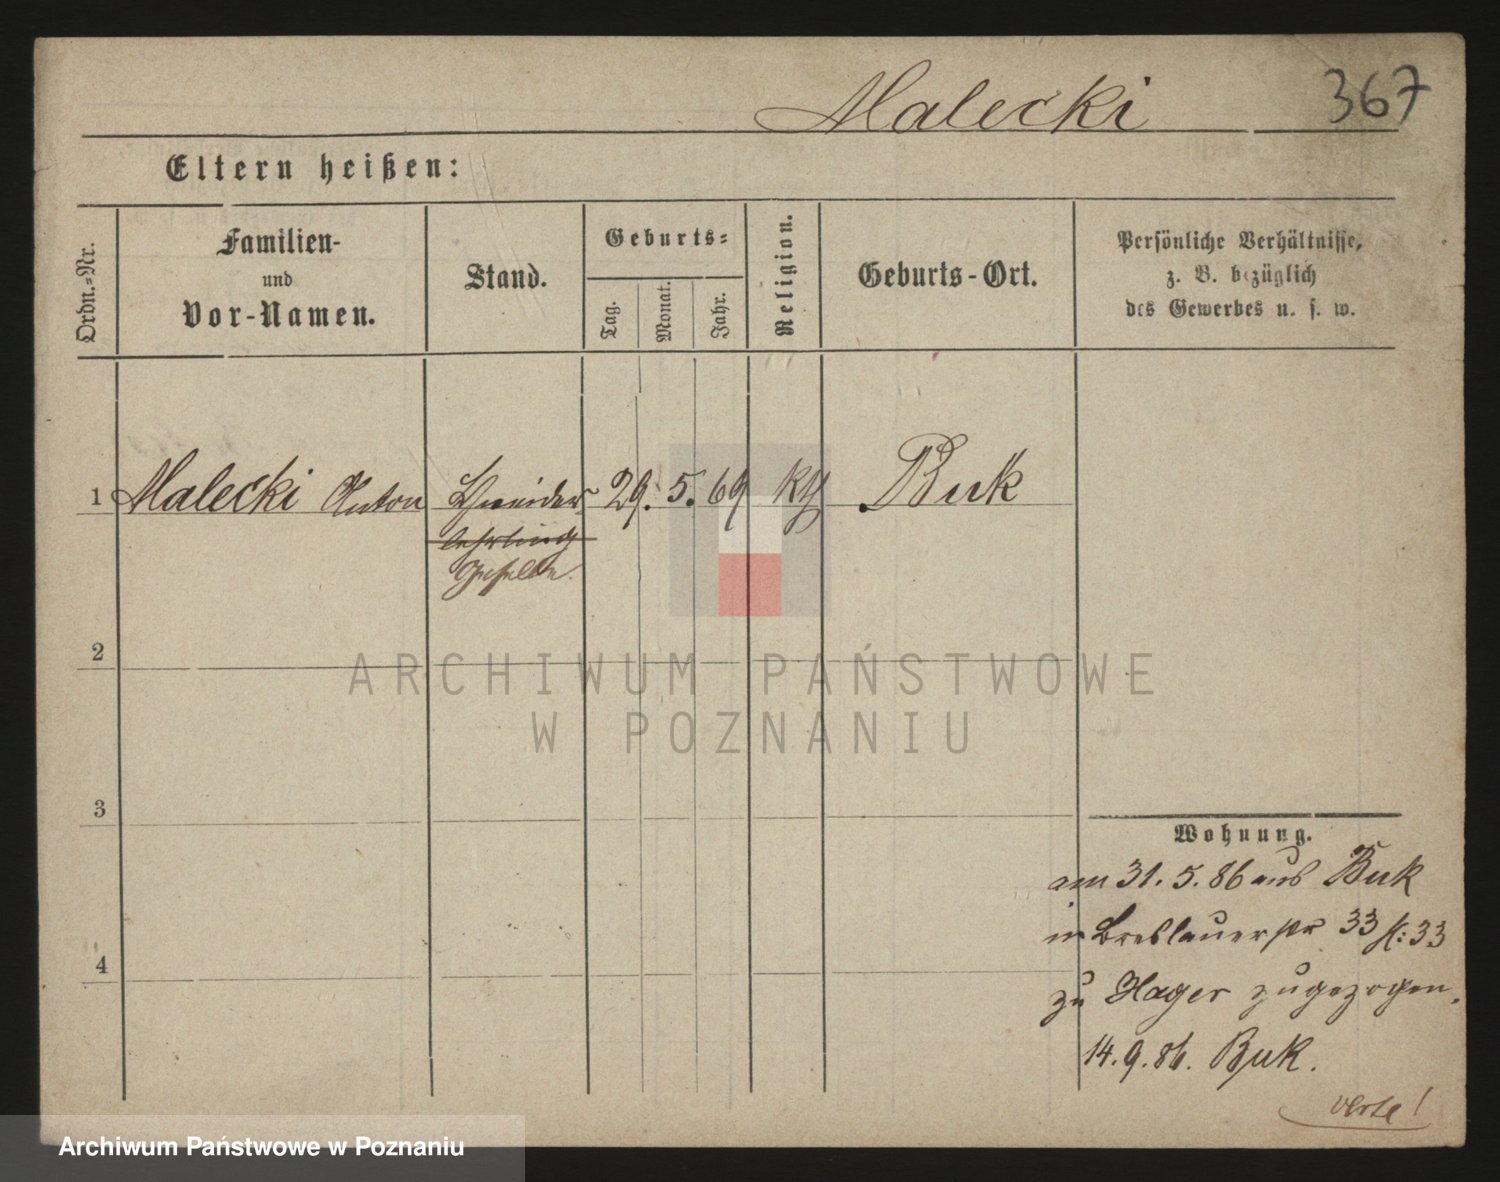 Malecki 367
Eltern heißen:
Ordn.-Nr.
Familien-
und
Vor-Namen.
Stand.
Geburts-
Tag.
Monat.
Jahr.
Religion.
Geburts-Ort.
Persönliche Verhältnisse,
z. B. bezüglich
des Gewerbes u. s. w.
1 Malecki Anton Schneider 29. 5. 69 Buk
lehrling
Geselle.
2
ARCHIWUM PAŃSTWOWE
W POZNANIU
3
Wohnung.
am 31. 5. 86 aus Buk
in Breslauerstr 33 33
zu Hager zugezogen.
4
14. 9. 86. Buk.
verte!
Archiwum Państwowe w Poznaniu